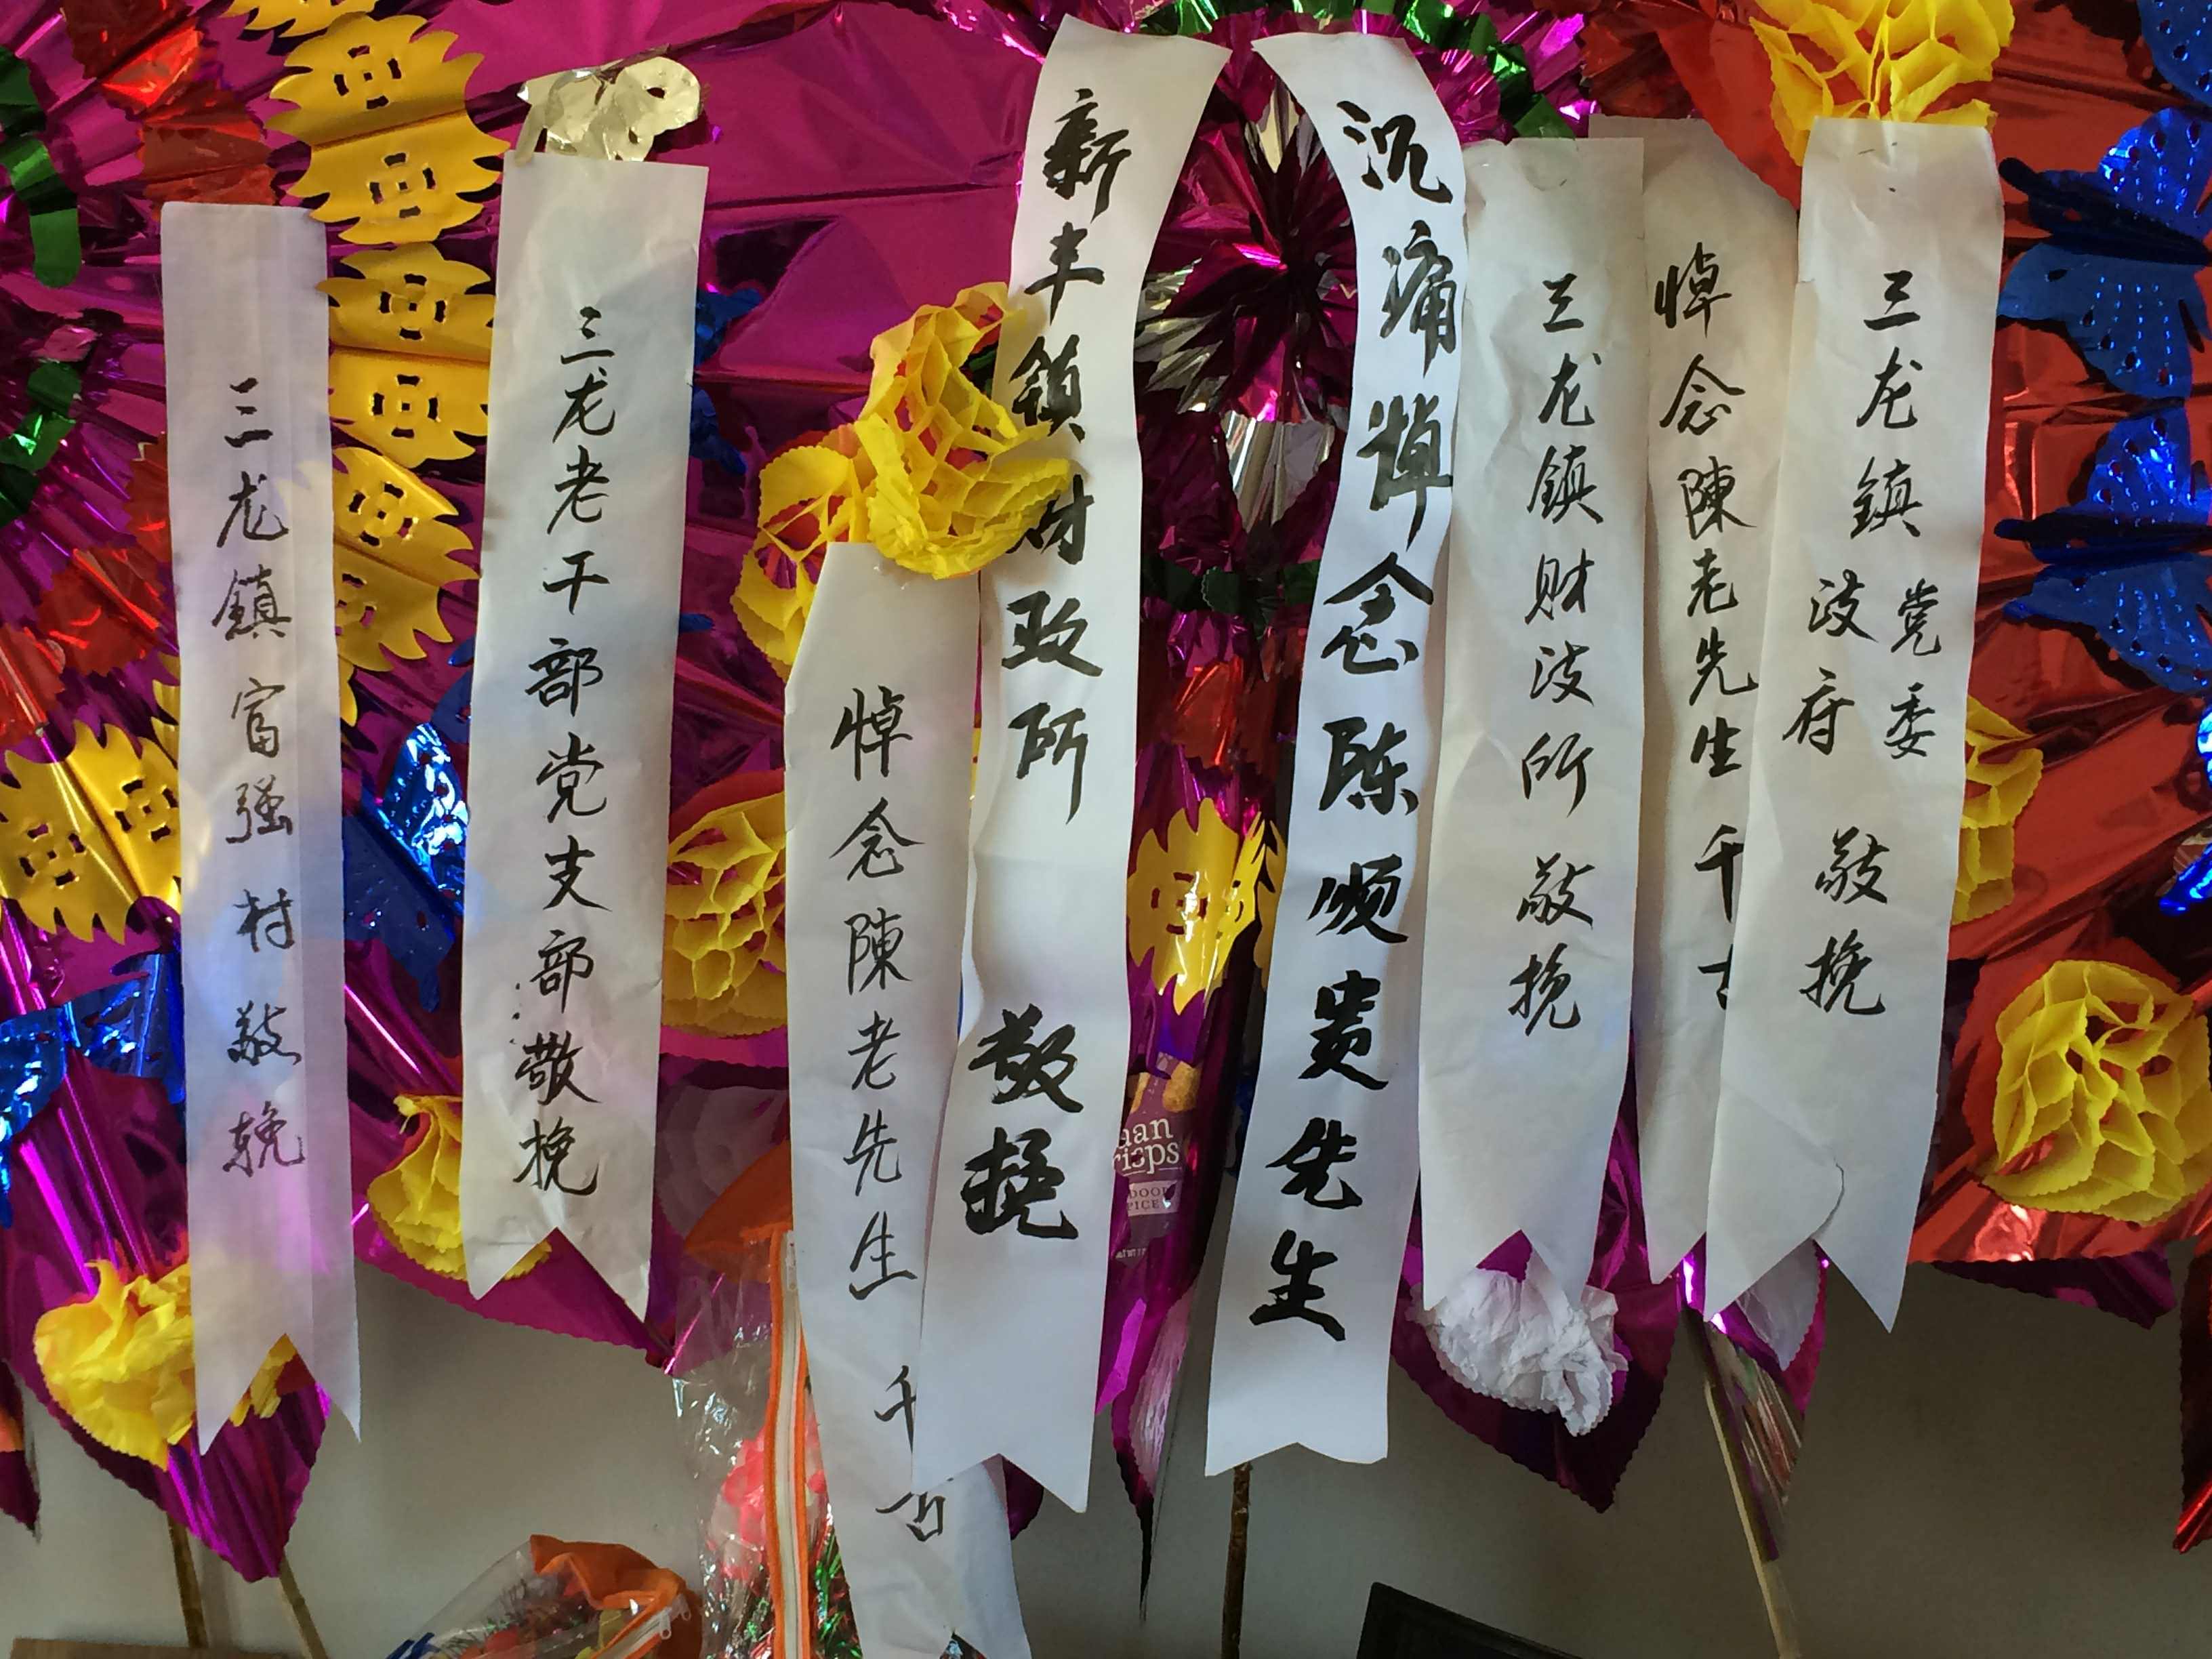 三龙鎮富强村敬挽
三龙老干部党支部敬挽
悼念陳老先生千古
新丰镇财政所敬挽
沉痛悼念陈顺贵先生
三龙鎮财政所敬挽
悼念陳老先生千古
三龙鎮党委政府敬挽